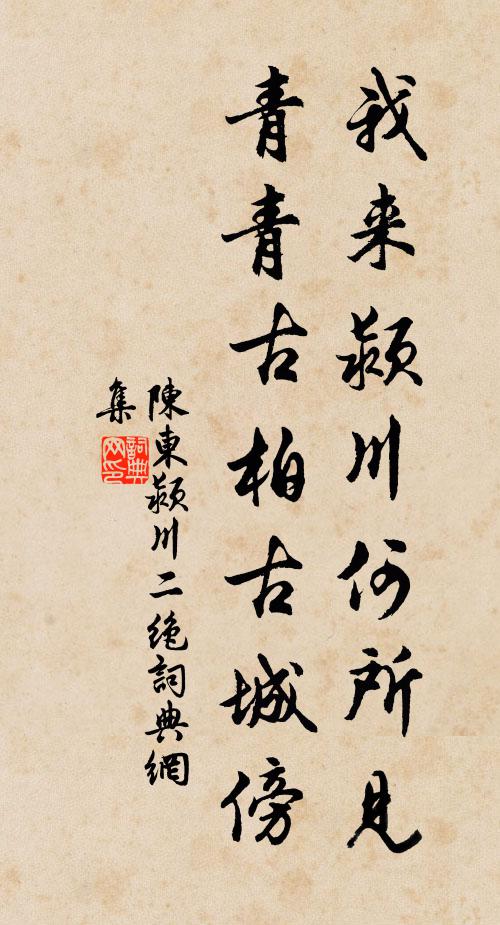 我来颍川何所見
青青古柏古城傍
陳東颍川二絶詞典網
集
詞典网印